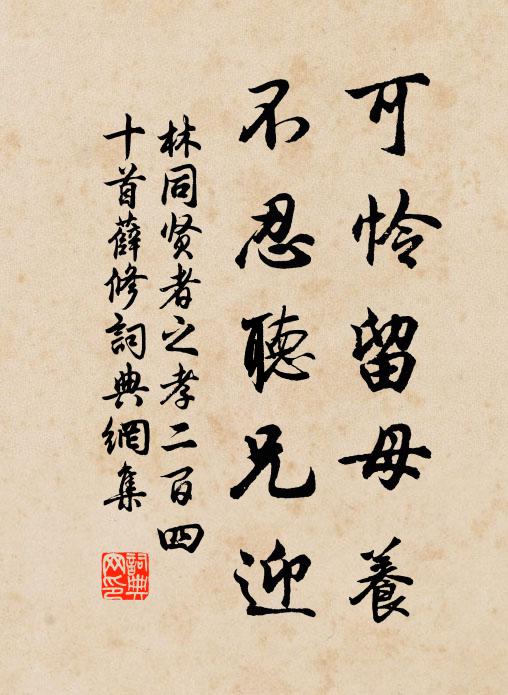 可怜留母养
不忍聽兄迎
林同贤者之孝二百四
十首薛修詞典網集
詞典
网印